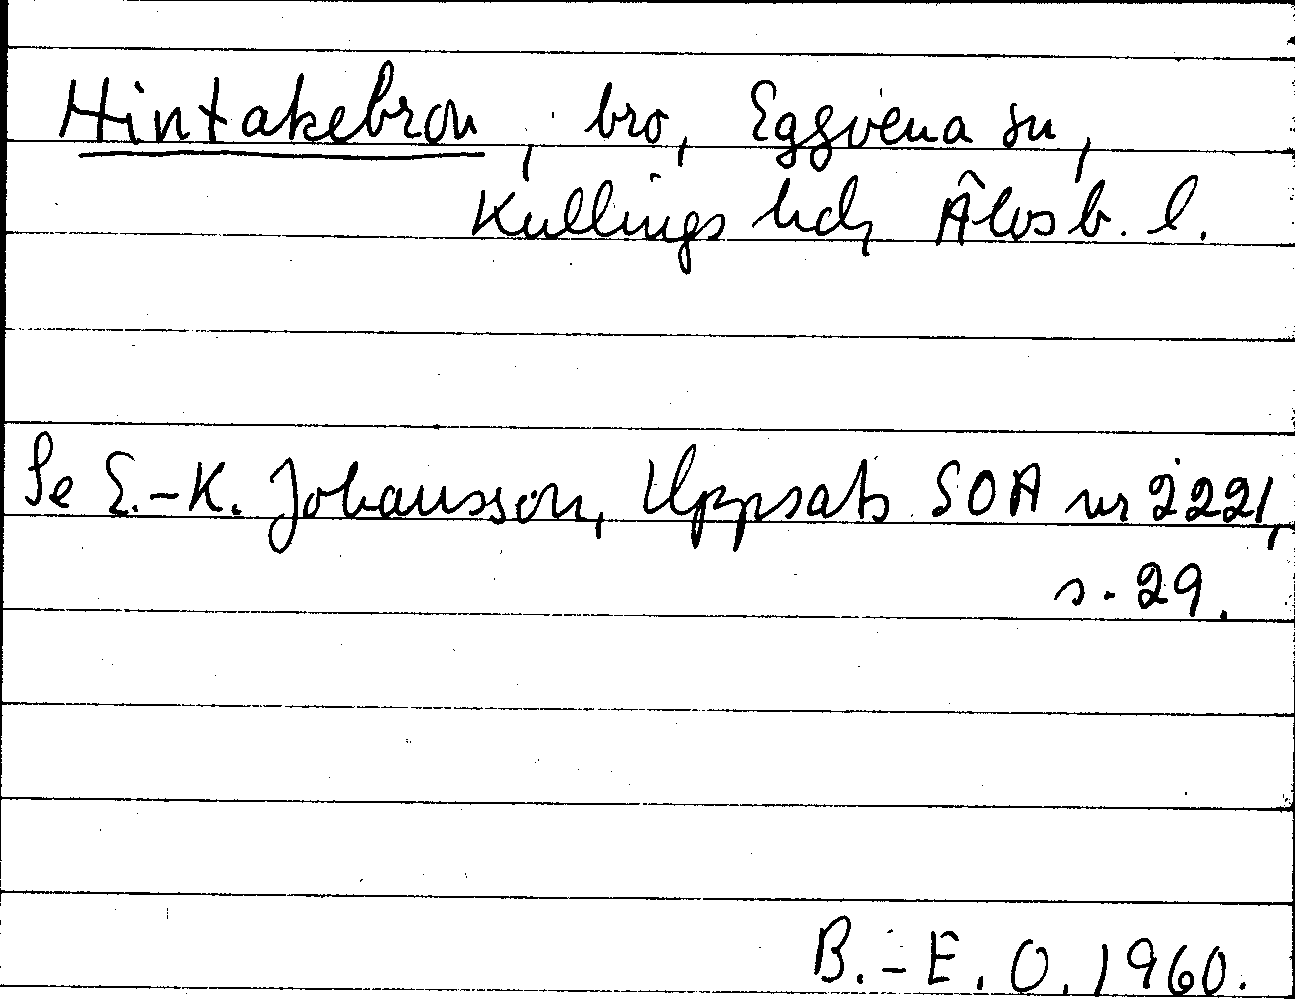 Hintakebron, bro, Eggvena sn,
Kullings hd, Älvsb. l.
Se E.-K. Johansson, Uppsats SOA nr 2221,
s. 29.
B.-E. O. 1960.